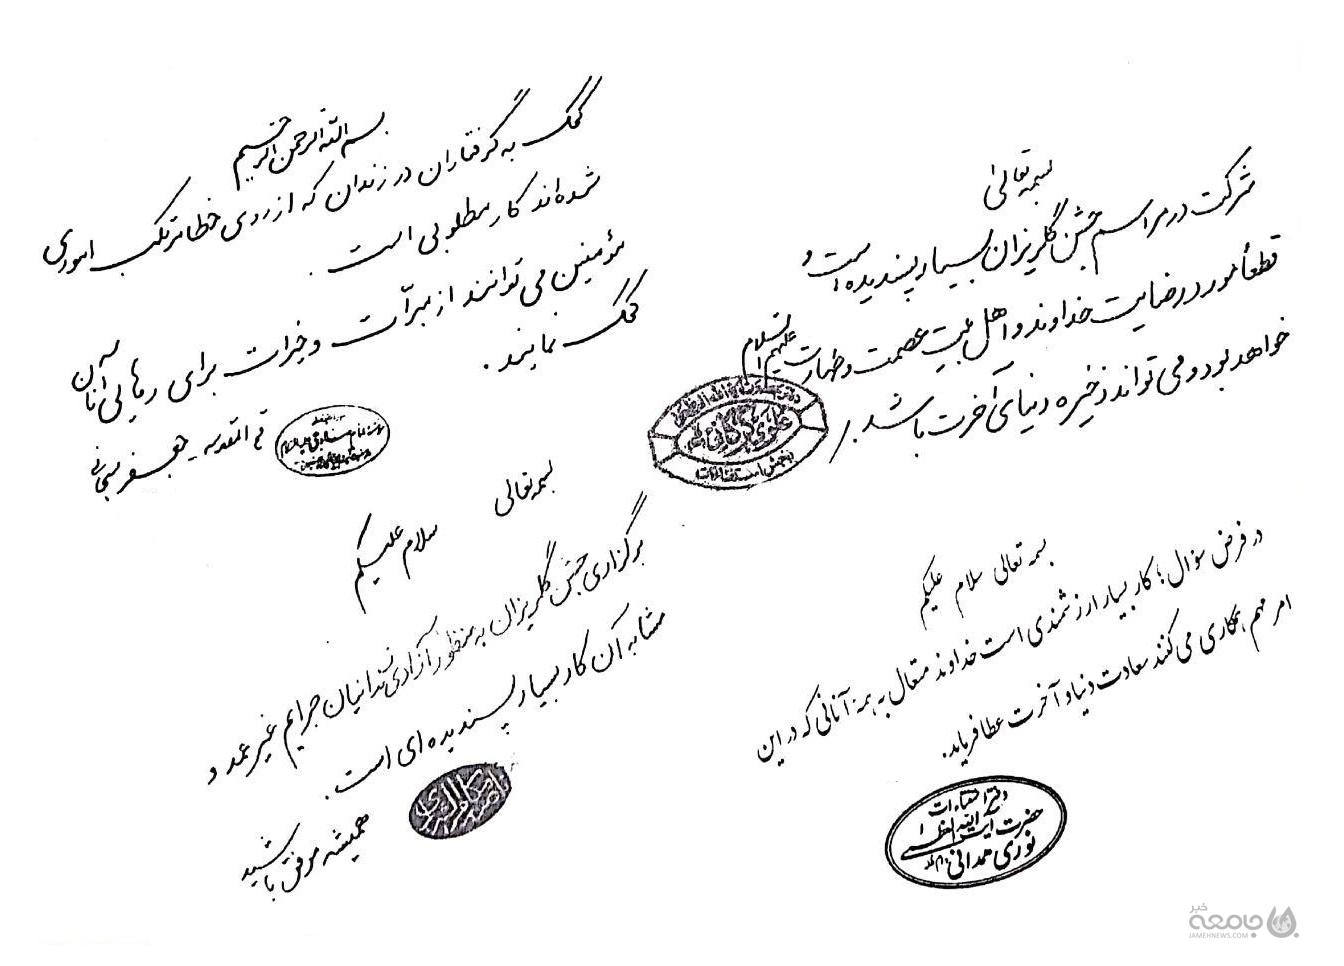 بسمه تعالی
شرکت در مراسم جشن گلریزان بسیار پسندیده است و
قطعاً مورد رضایت خداوند و اهل بیت عصمت و طهارت علیهم السلام
خواهد بود و می تواند ذخیره دنیای آخرت باشد.
علوی گرگانی
بسم الله الرحمن الرحیم
کمک به گرفتاران در زندان که از روی خطا مرتکب اموری
شده اند کار مطلوبی است.
مؤمنین می توانند از مبرآت و خیرات برای رهایی آنان
کمک نمایند.
قم المقدسه جعفر سبحانی
بسمه تعالی سلام علیکم
در فرض سؤال؛ کار بسیار ارزشمندی است خداوند متعال به همه آنانی که در این
امر مهم همکاری می کنند سعادت دنیا و آخرت عطا فرماید.
دفتر استفتاءات
حضرت آیت الله العظمی
نوری همدانی
بسمه تعالی
سلام علیکم
برگزاری جشن گلریزان به منظور آزادی زندانیان جرایم غیر عمد و
مشابه آن کار بسیار پسندیده ای است.
همیشه موفق باشید
جامعه خبر
JAMEHNEWS.COM